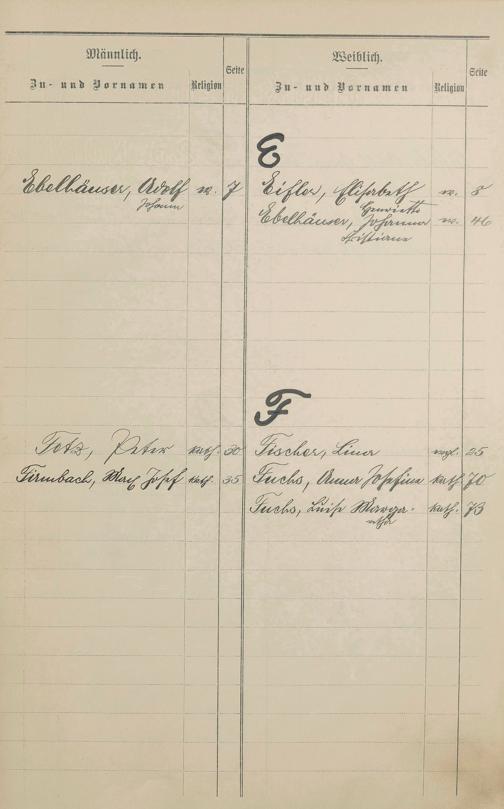 Männlich.
Zu- und Vornamen Religion Seite
Weiblich.
Zu- und Vornamen Religion Seite
E
Ebelhäuser, Adolf w. 7
Johann
Eifler, Elisabeth w. 8
Henriette
Ebelhäuser, Johanna w. 46
Kristiane
F
Fetz, Peter kath. 30
Fischer, Lina 25
Firmbach, Max Josef kath. 35
Fuchs, Anna Josefine kath. 70
Fuchs, Luise Marga- kath. 73
retha